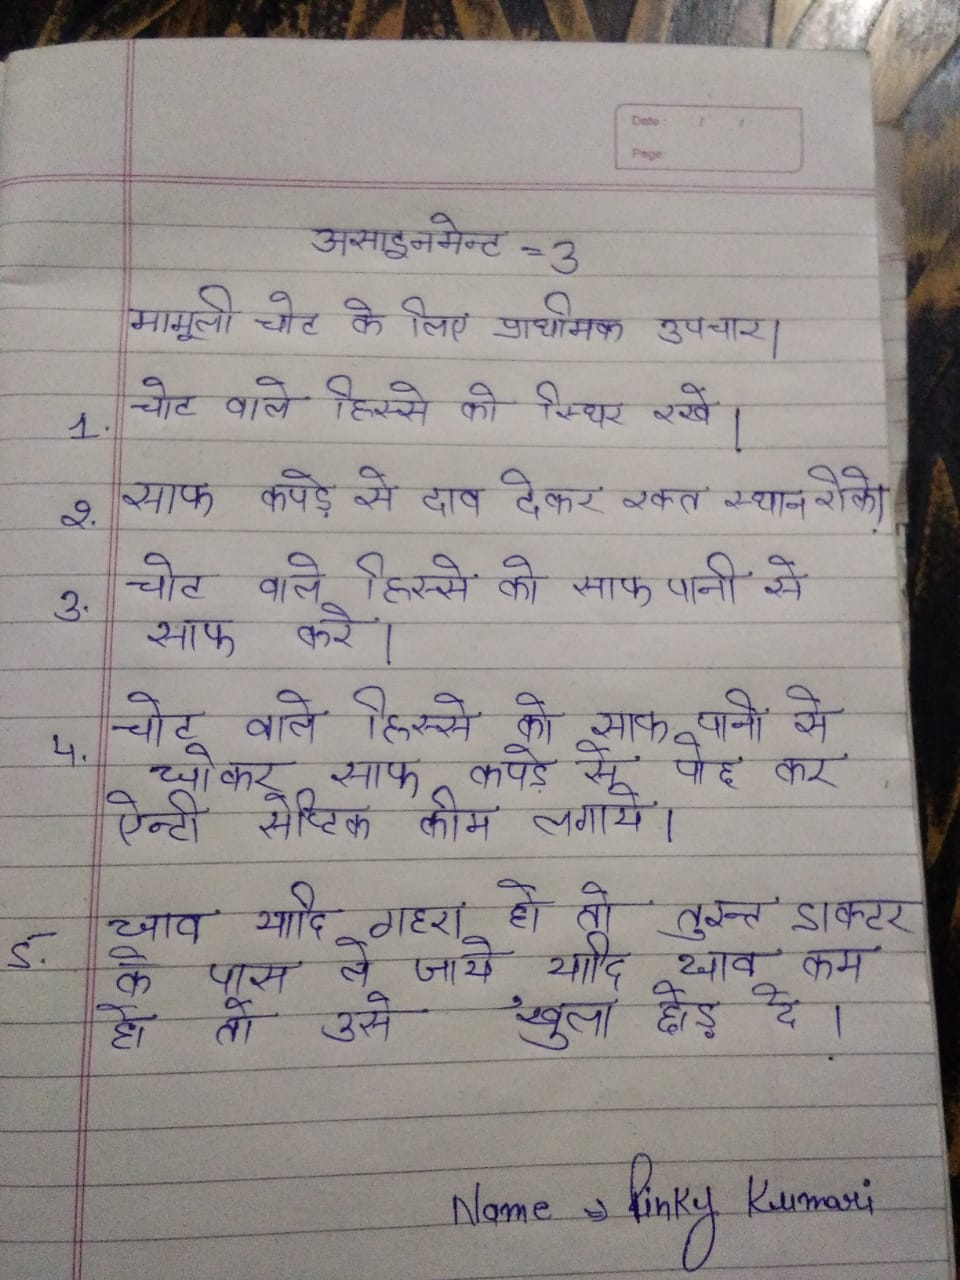 Date : / /
Page:
असाइनमेन्ट = 3
मामूली चोट के लिए प्राथमिक उपचार।
1. चोट वाले हिस्से को स्थिर रखें।
2. साफ कपड़े से दाव देकर रक्त स्थान रोके।
3. चोट वाले हिस्से को साफ पानी से
साफ करे।
4. चोट वाले हिस्से को साफ पानी से
धोकर साफ कपड़े से पोछ कर
ऐन्टी सेप्टिक क्रीम लगाये।
5. घाव यदि गहरा हो तो तुरन्त डाक्टर
के पास ले जाये यदि घाव कम
हो तो उसे खुला छोड़ दे।
Name → Pinky Kumari